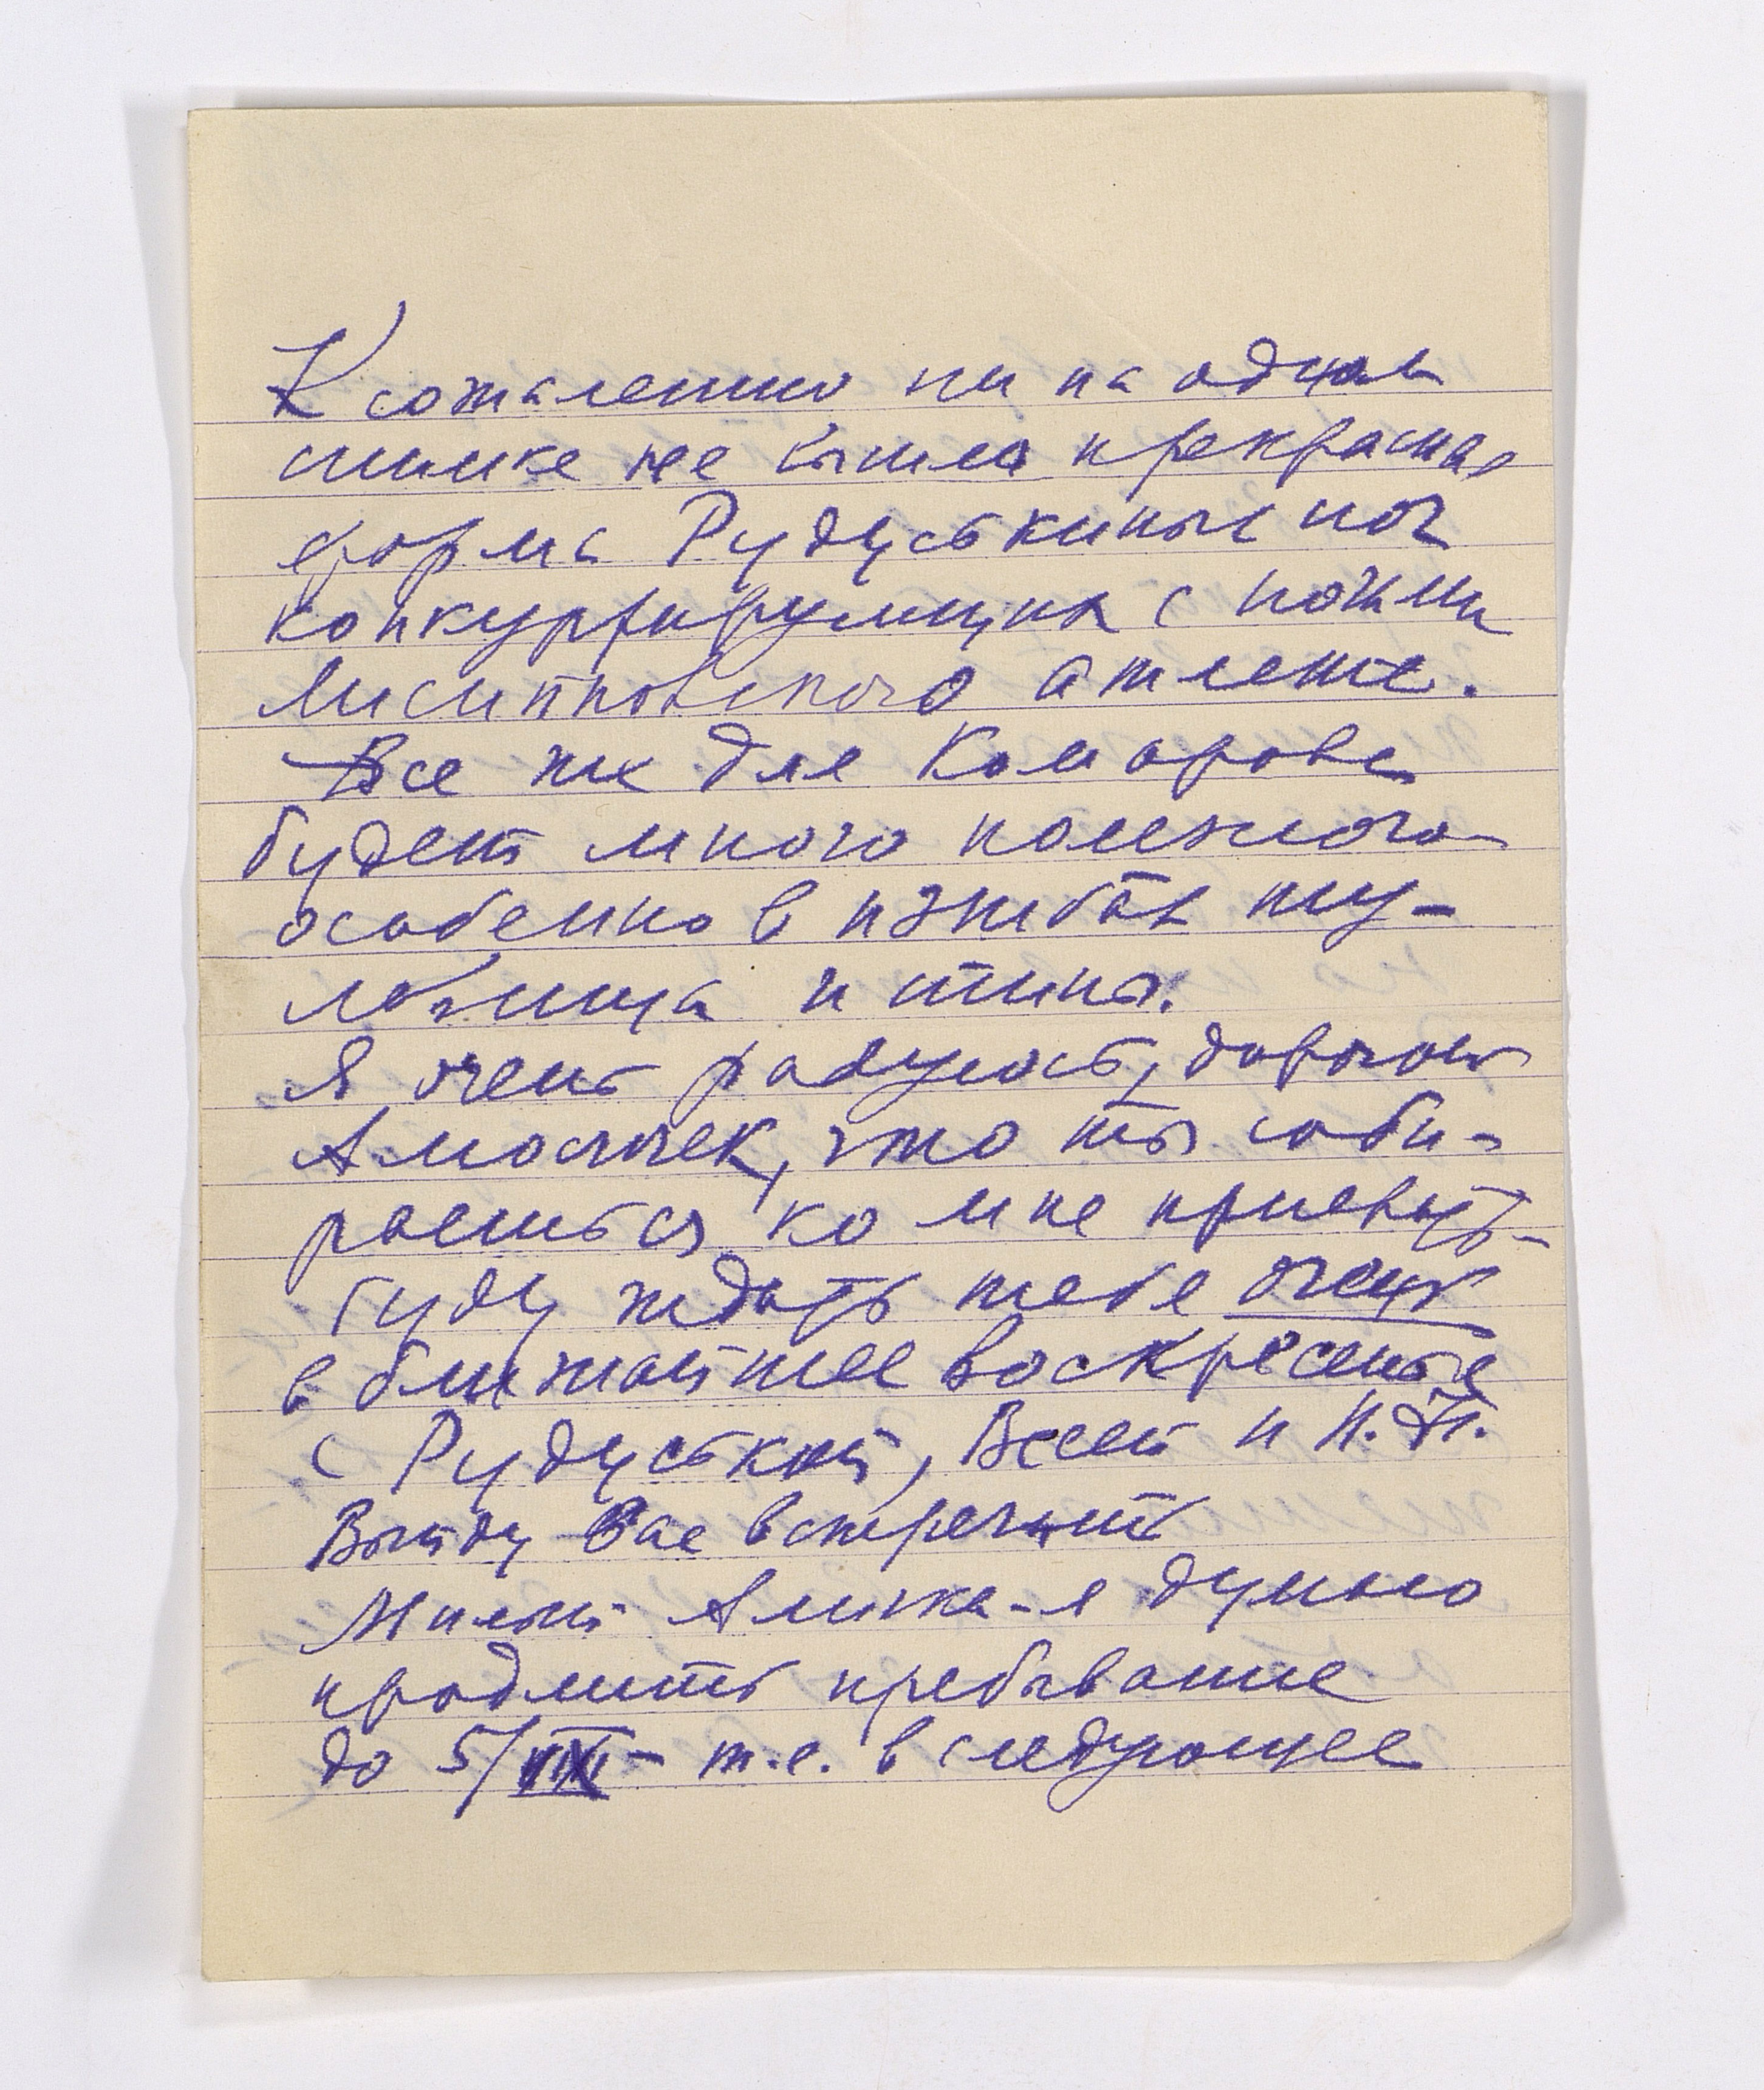 К сожалению ни на одном
снимке не вышла прекрасная
форма Рудуськиных ног
конкурирующих с ногами
Лисипповского атлета.
Все же для Комарова
будет много полезного
особенно в изгибах ту-
ловища и спины.
Я очень радуюсь, дорогой
Амосичек, что ты соби-
раешься ко мне приехать-
буду ждать тебя очень
в ближайшее воскресенье
с Рудуськой, Всей и Н.Н.
Выйду Вас встречать
Милый Алика - я думаю
продлить пребывание
до 5/ - т.е. в следующее